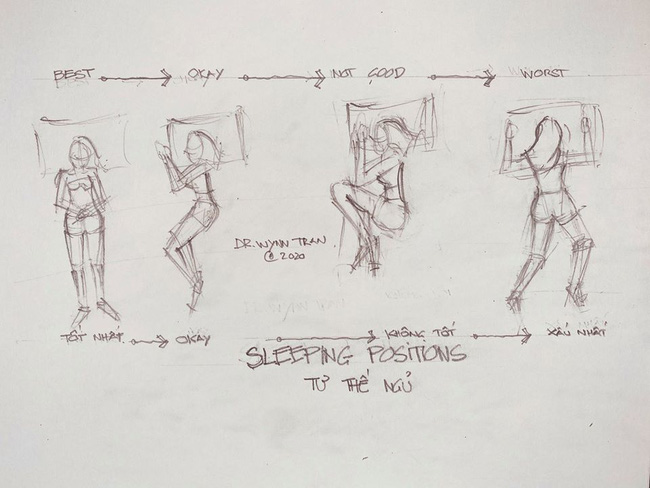 BEST OKAY NOT GOOD WORST
DR. WYNN TRAN
@ 2020
TỐT NHẤT OKAY KHÔNG TỐT XẤU NHẤT
SLEEPING POSITIONS
TƯ THẾ NGỦ